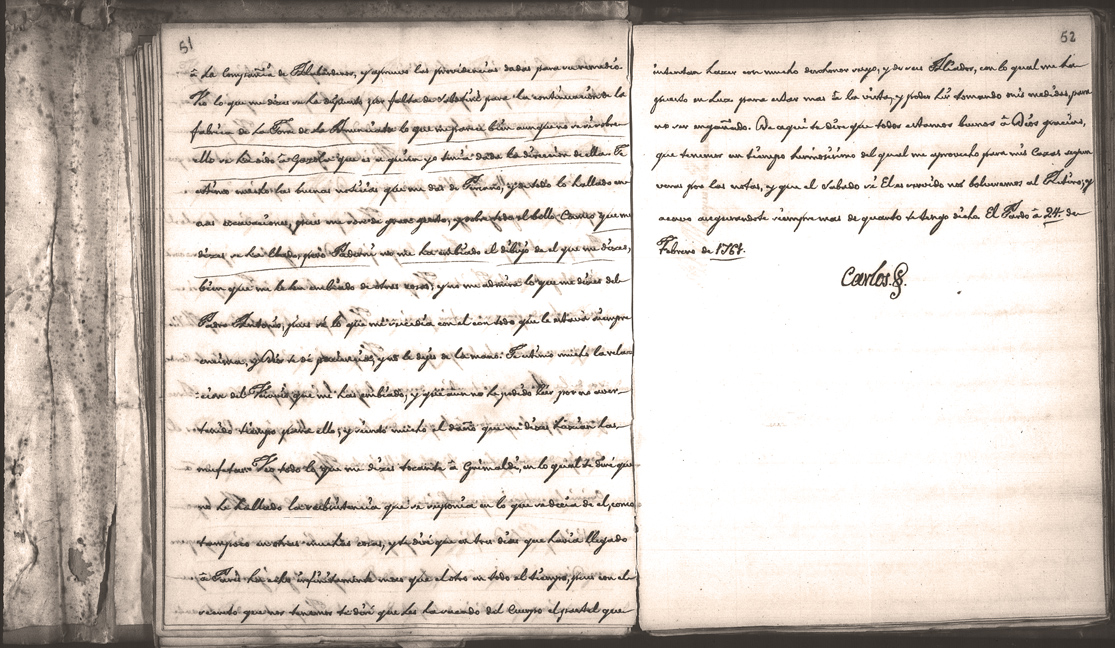 51
â la Compañia de Alabarderos, y apruevo las providencias dadas para su remedio.
Veo lo que me dizes se ha dispuesto por falta de sobstrui para la continuacion de la
fabrica de la Torre de la Anunciata lo que me parece bien aunque no se si sobre
ello se ha oido â Gazola que es a quien yo tenia dada la direccion de ella. Te
estimo mucho las buenas noticias que me das de Turano, y en todo lo hallado en
aas escavaciones, pues me son de gran gusto, y sobre todo el bello que me
dizes se ha hallado, pero Paderni no me ha embiado el dibujo de el que me dizes,
bien que me le ha embiado de otras cosas; y no me admira lo que me dizes del
Padre Antonio, pues sé lo que me sucedia con el con todo que le estava siempre
encima, y Dios te dé paciencia, y no le dejes de la mano. Te estimo mucho la rela-
cion del que me has embiado, y que aun no he podido leer por no aver-
tenido tiempo para ello, y siento mucho el daño que me dizes hacian las
Veo todo lo que me dizes tocante â Grimaldi, en lo qual te diré que
no he hallado la substancia que se suponia en lo que se decia de el, como
tampoco en otras muchas cosas, y te diré que en tres dias que havia llegado
â Paris ha echo infinitamente mas que el otro en todo el tiempo, pues con el
secreto que nos tenemos te diré que les ha sacado del Cuerpo el pastel que
52
intentan hazer con mucho deshonor suyo, y de sus Aliados, con lo qual me ha
puesto en luz para estar mas â la vista, y poder hir tomando mis medidas, para
no ser engañado. De aqui te dire que todos estamos buenos â Dios gracias,
que tenemos un tiempo hermosisimo del qual me aprovecho para mis Cazas segun
veras por las notas, y que el Sabado si Él es servido nos bolveremos al Retiro; y
acavo asegurandote siempre mas de quanto te tengo dicho El Pardo â 24. de
Febrero de 1761.
Carlos.